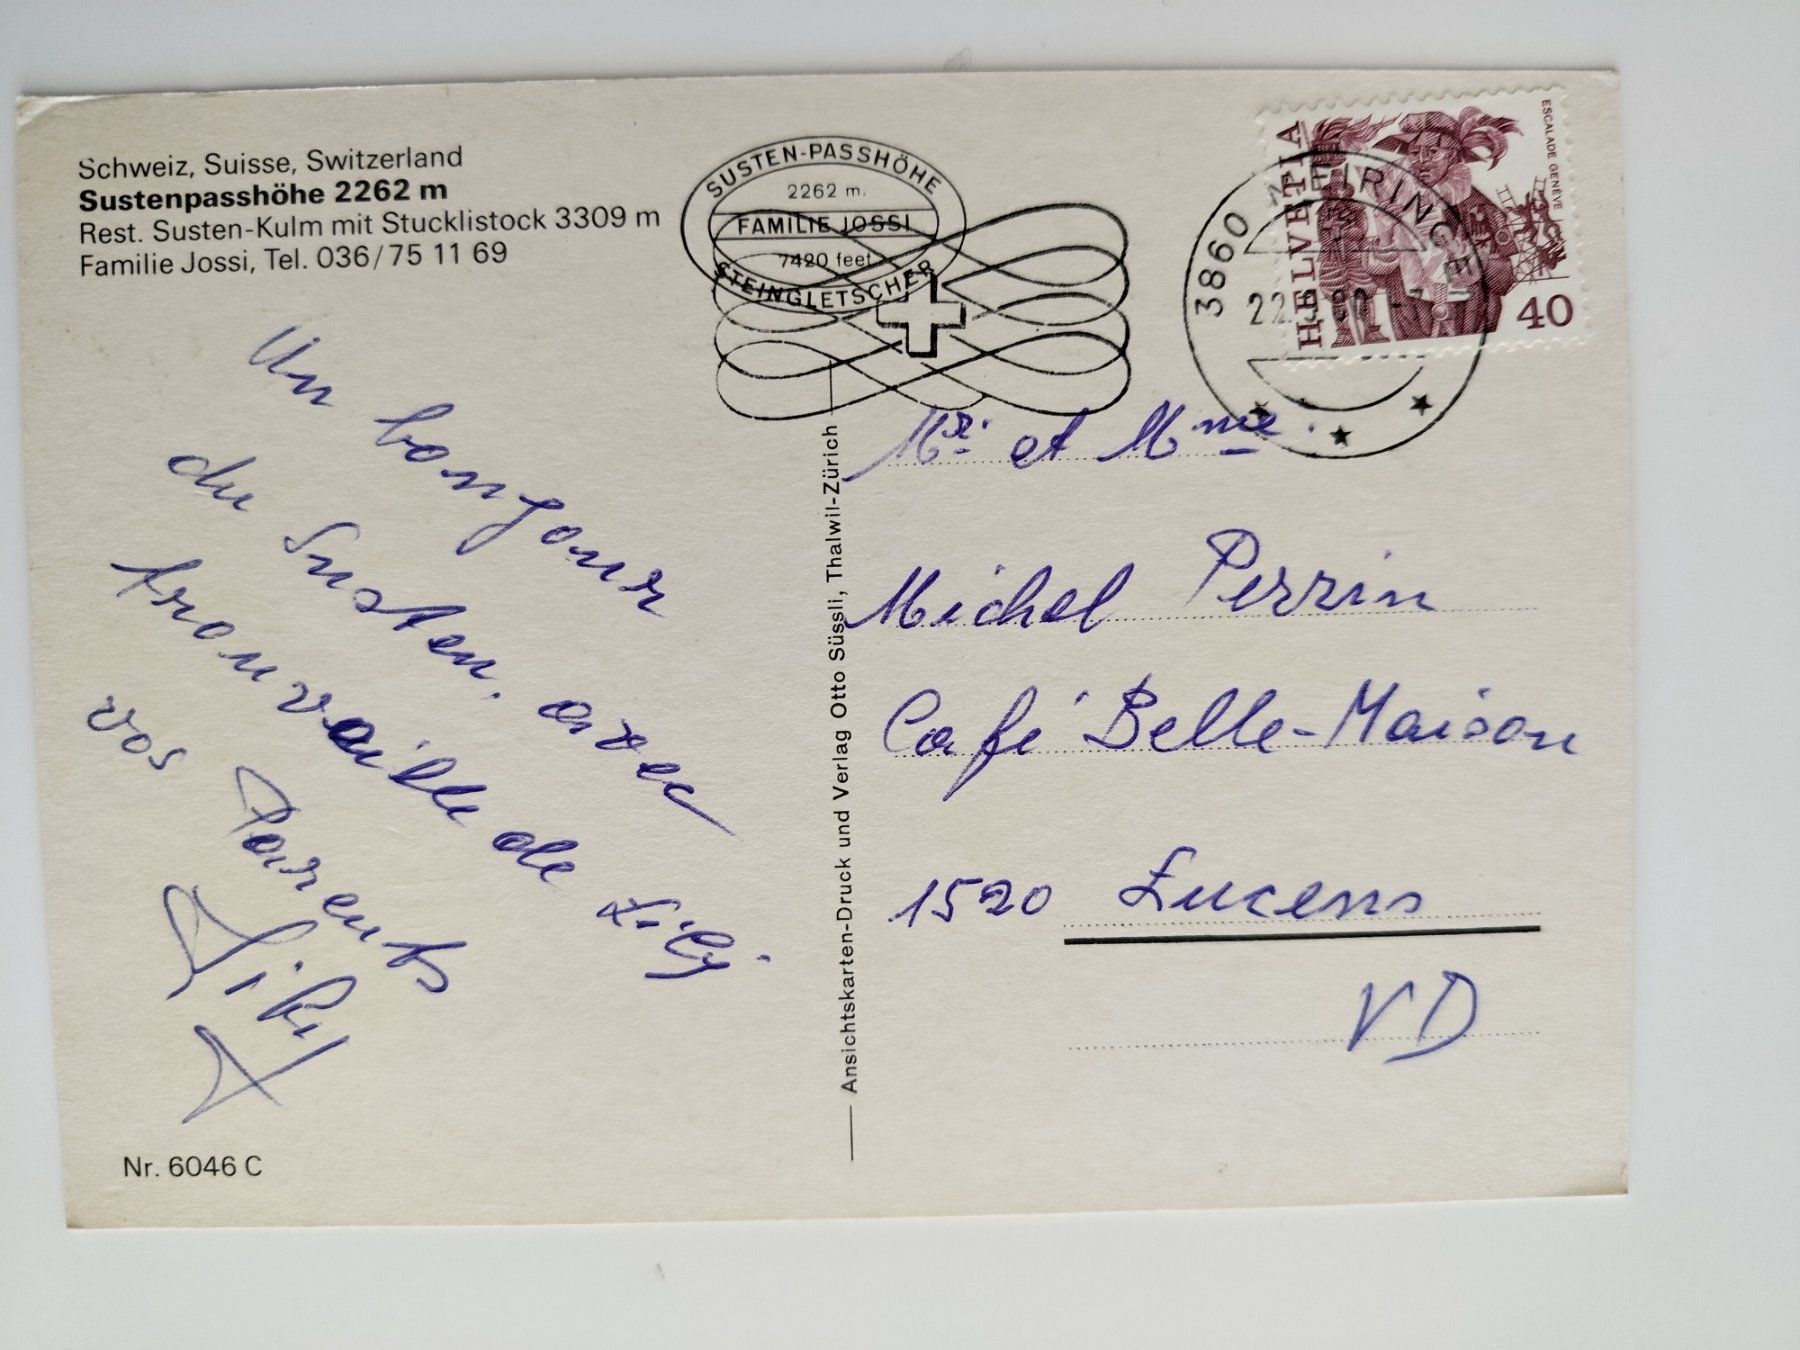 Schweiz, Suisse, Switzerland
Sustenpasshöhe 2262 m
Rest. Susten-Kulm mit Stucklistock 3309 m
Familie Jossi, Tel. 036/75 11 69
SUSTEN-PASSHÖHE
2262 m.
FAMILIE JOSSI
7420 feet
STEINGLETSCHER
3860 MEIRINGEN
22.
HELVETIA
ESCALADE GENÈVE
40
Un bonjour
du Susten, avec
trouvaille de Lily.
vos Parents
Mr. et Mme.
Michel Perrin
Café Belle-Maison
1520 Lucens
VD
Ansichtskarten-Druck und Verlag Otto Süssli, Thalwil-Zürich
Nr. 6046 C